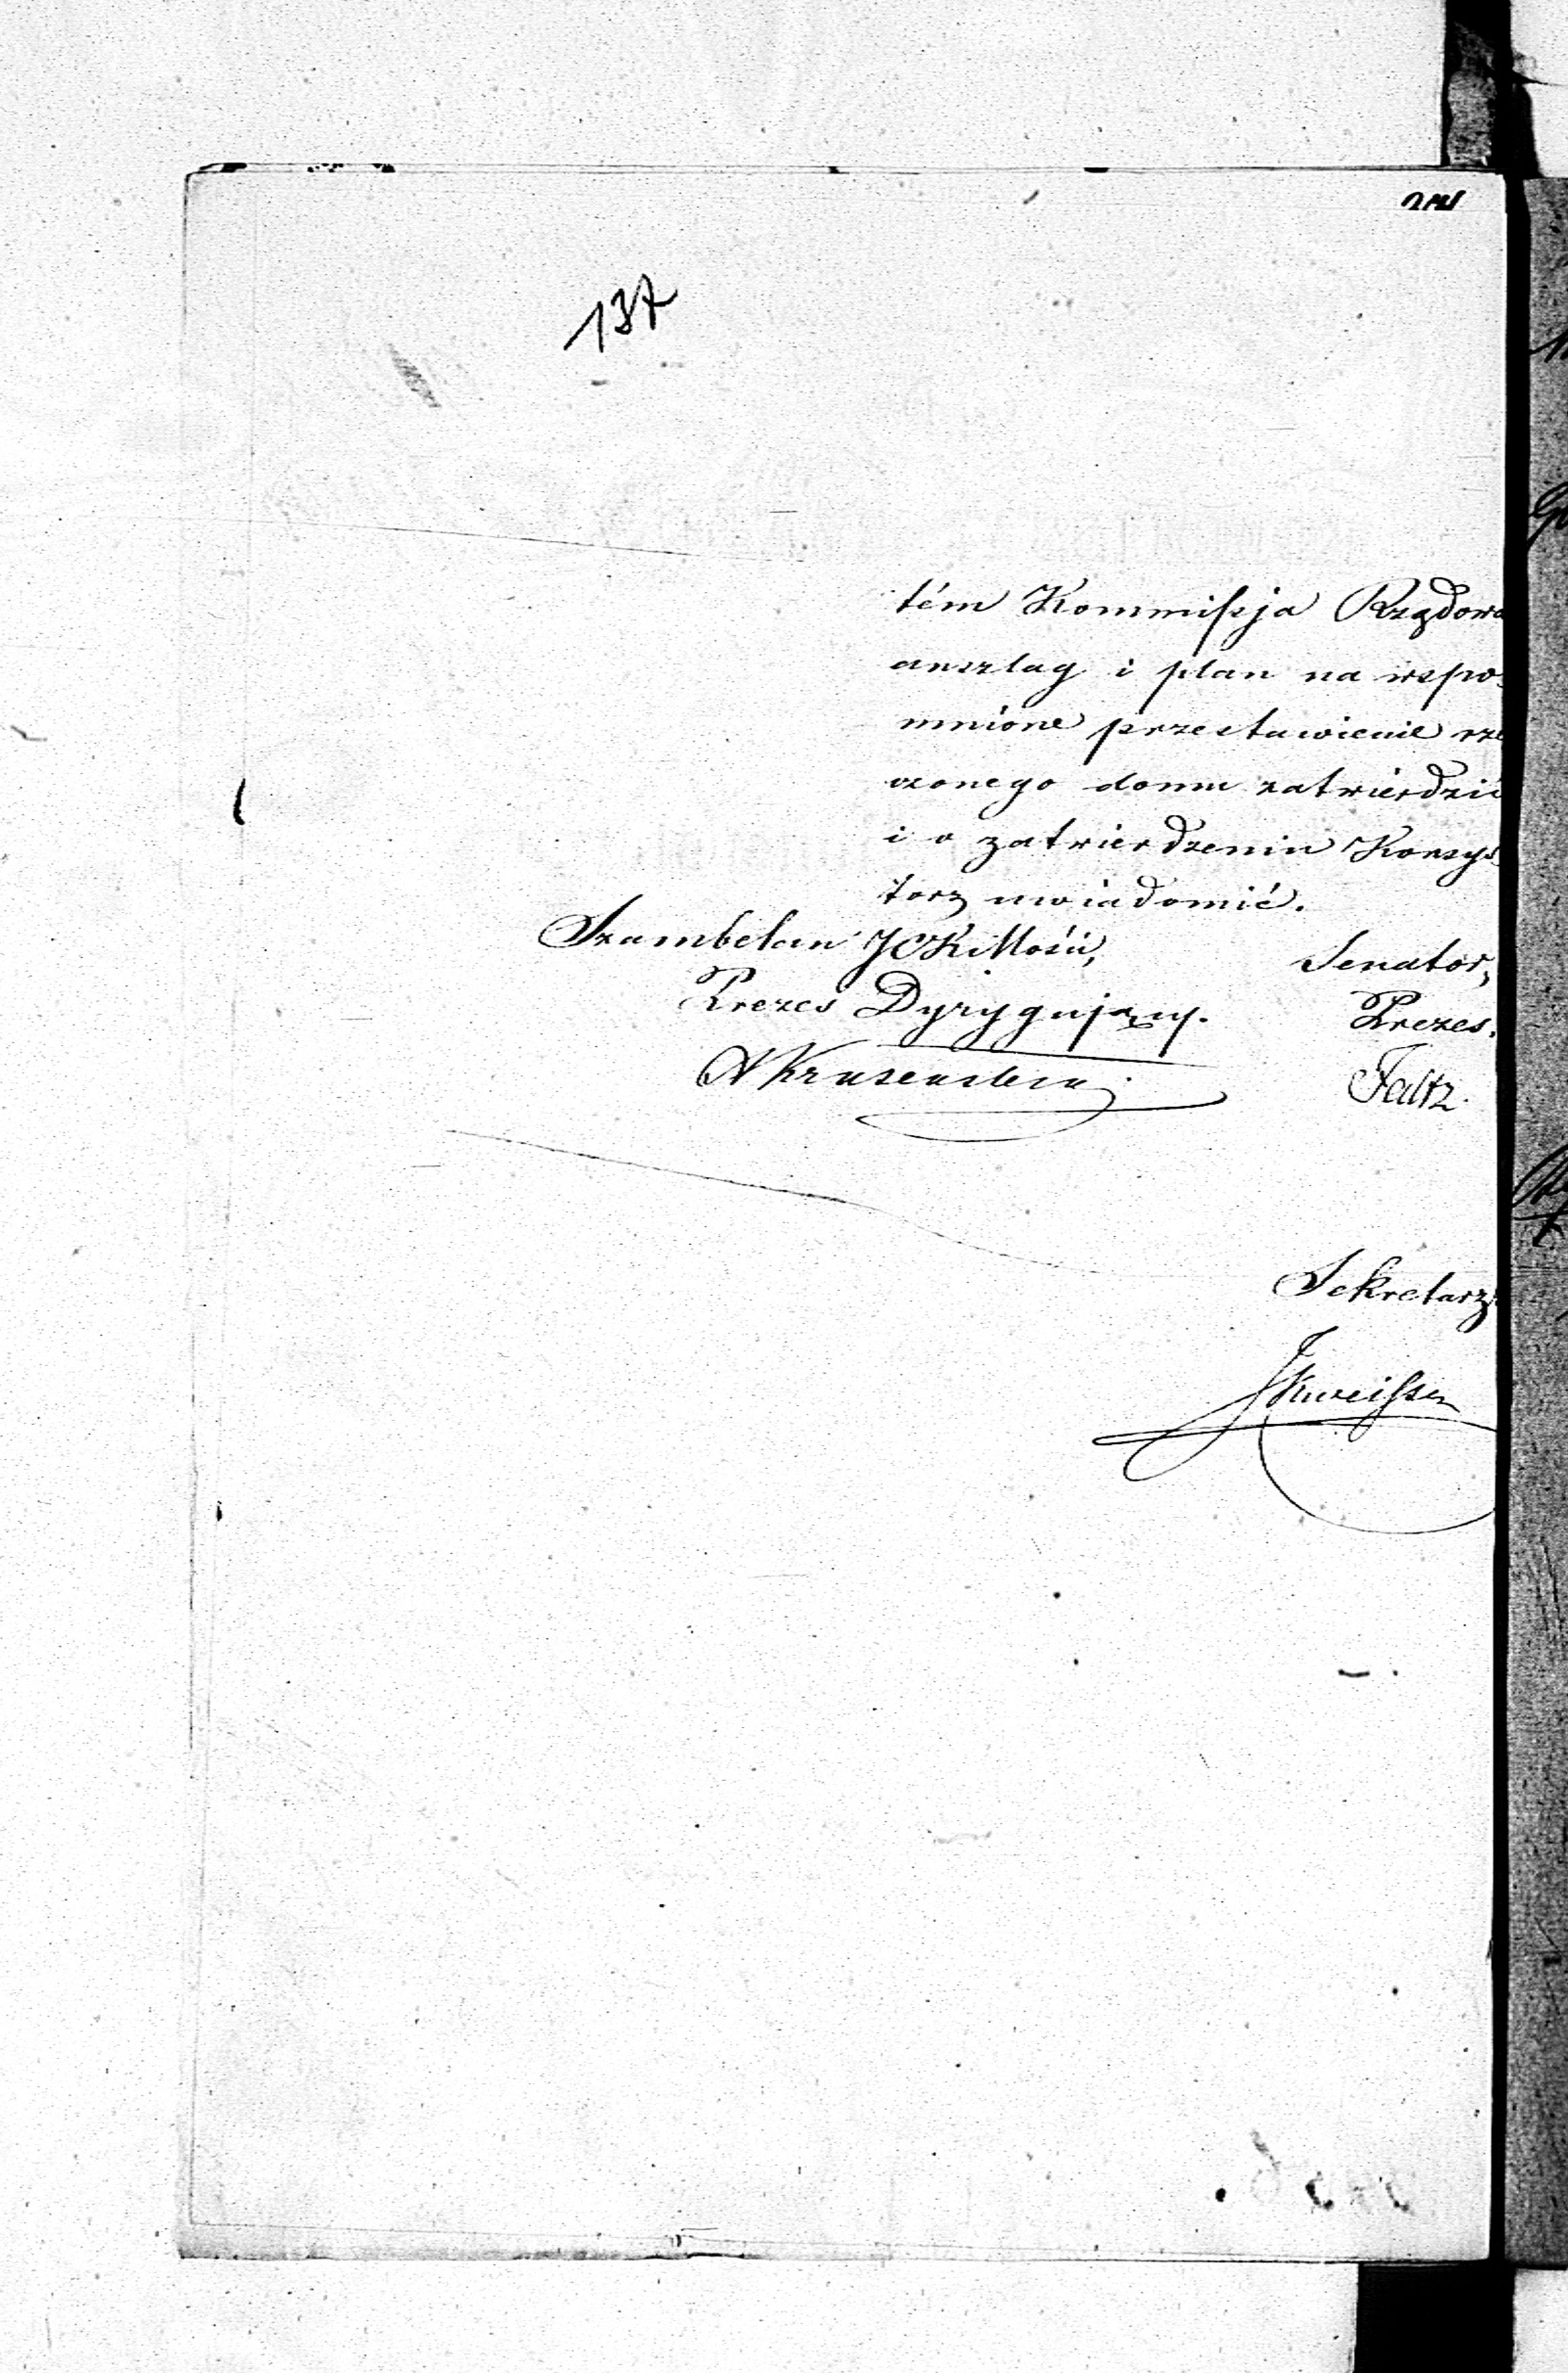 137
tém Kommissja Rządowa
anszlag i plan na wspo-
mnione przestawienie rze
czonego domu zatwierdzić
i o zatwierdzeniu Konsys
torz uwiadomić.
Szambelan JCKMości,
Prezes Dyrygujący.
Senator,
Prezes.
Krusenstern
Faltz.
Sekretarz